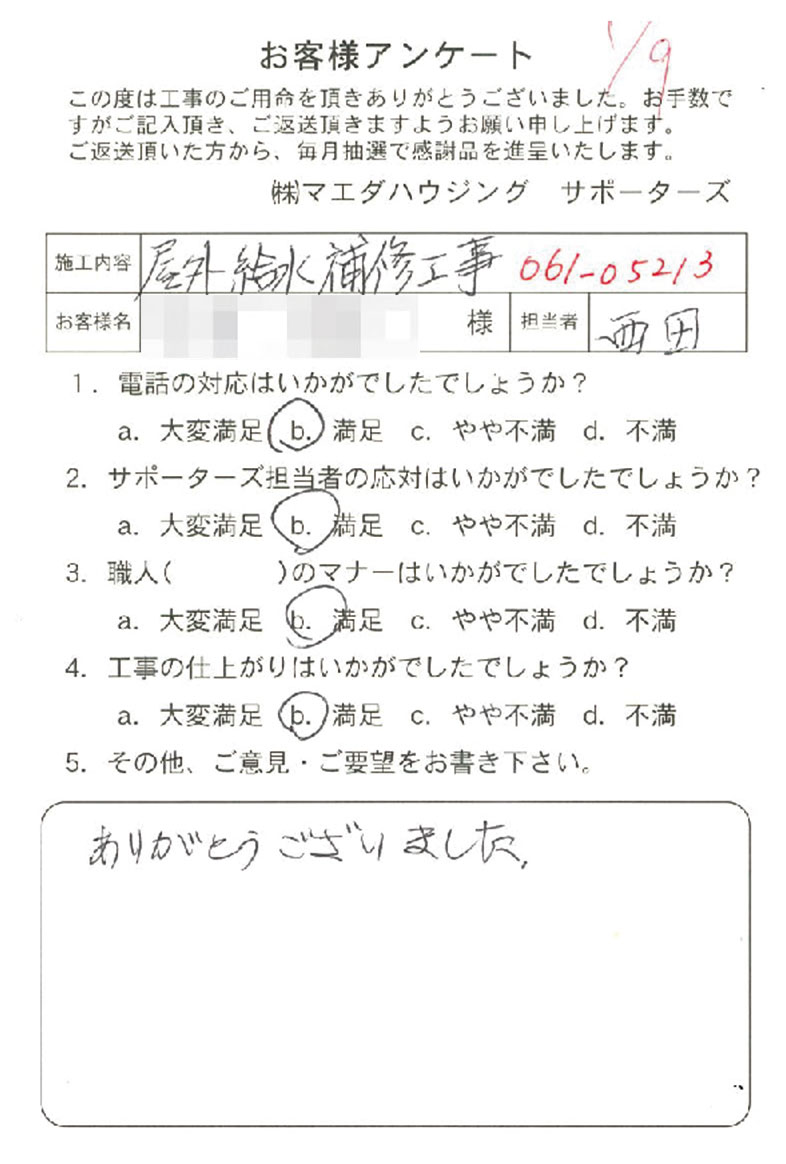 お客様アンケート 1/9
この度は工事のご用命を頂きありがとうございました。お手数で
すがご記入頂き、ご返送頂きますようお願い申し上げます。
ご返送頂いた方から、毎月抽選で感謝品を進呈いたします。
㈱マエダハウジング サポーターズ
施工内容 屋外給水補修工事 061-05213
お客様名 様 担当者 西田
1. 電話の対応はいかがでしたでしょうか？
a. 大変満足 b. 満足 c. やや不満 d. 不満
2. サポーターズ担当者の応対はいかがでしたでしょうか？
a. 大変満足 b. 満足 c. やや不満 d. 不満
3. 職人( )のマナーはいかがでしたでしょうか？
a. 大変満足 b. 満足 c. やや不満 d. 不満
4. 工事の仕上がりはいかがでしたでしょうか？
a. 大変満足 b. 満足 c. やや不満 d. 不満
5. その他、ご意見・ご要望をお書き下さい。
ありがとうございました。